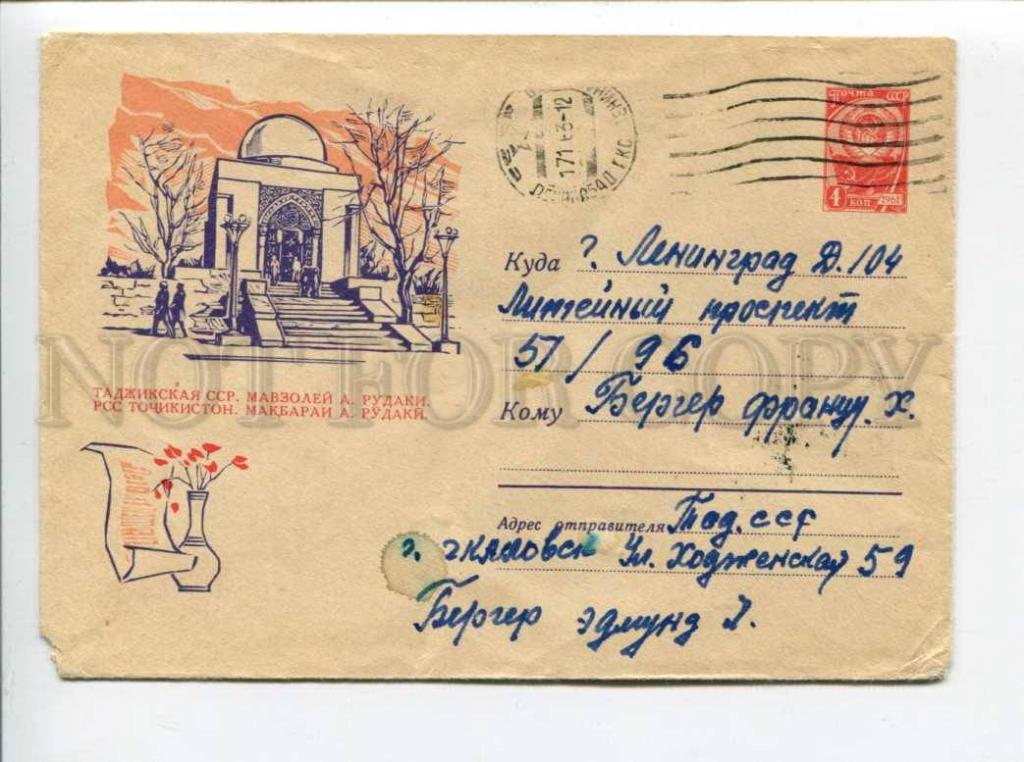 почта СССР
4 коп
17 1 63-12
Куда г. Ленинград Д.104
Литейный проспект
57 / 96
Кому Бергер француз. Х.
ТАДЖИКСКАЯ ССР. МАВЗОЛЕЙ А. РУДАКИ.
РСС ТОҶИКИСТОН. МАҚБАРАИ А. РӮДАКӢ.
Адрес отправителя Тад. ССР
г. Чкаловск Ул. Ходженская 59
Бергер Эдмунд
NOT FOR COPY